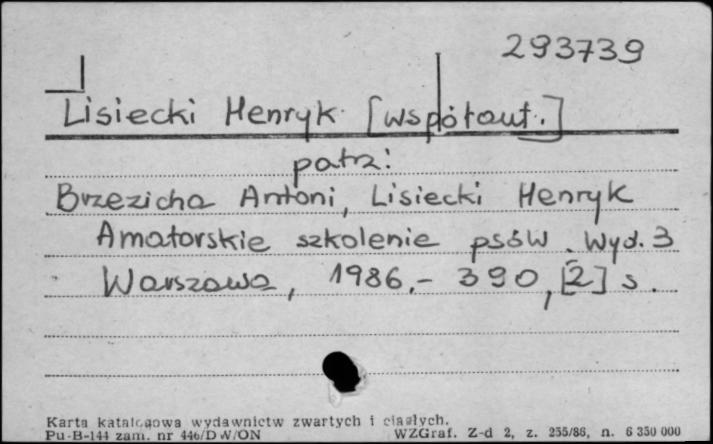 293739
Lisiecki Henryk [współaut.]
patrz:
Brzezicha Antoni, Lisiecki Henryk
Amatorskie szkolenie psów. Wyd. 3
Warszawa, 1986.- 390, [2] s.
Karta katalogowa wydawnictw zwartych i ciągłych.
Pu-B-144 zam. nr 446/DW/ON WZGraf. Z-d 2, z. 255/86, n. 6 350 000